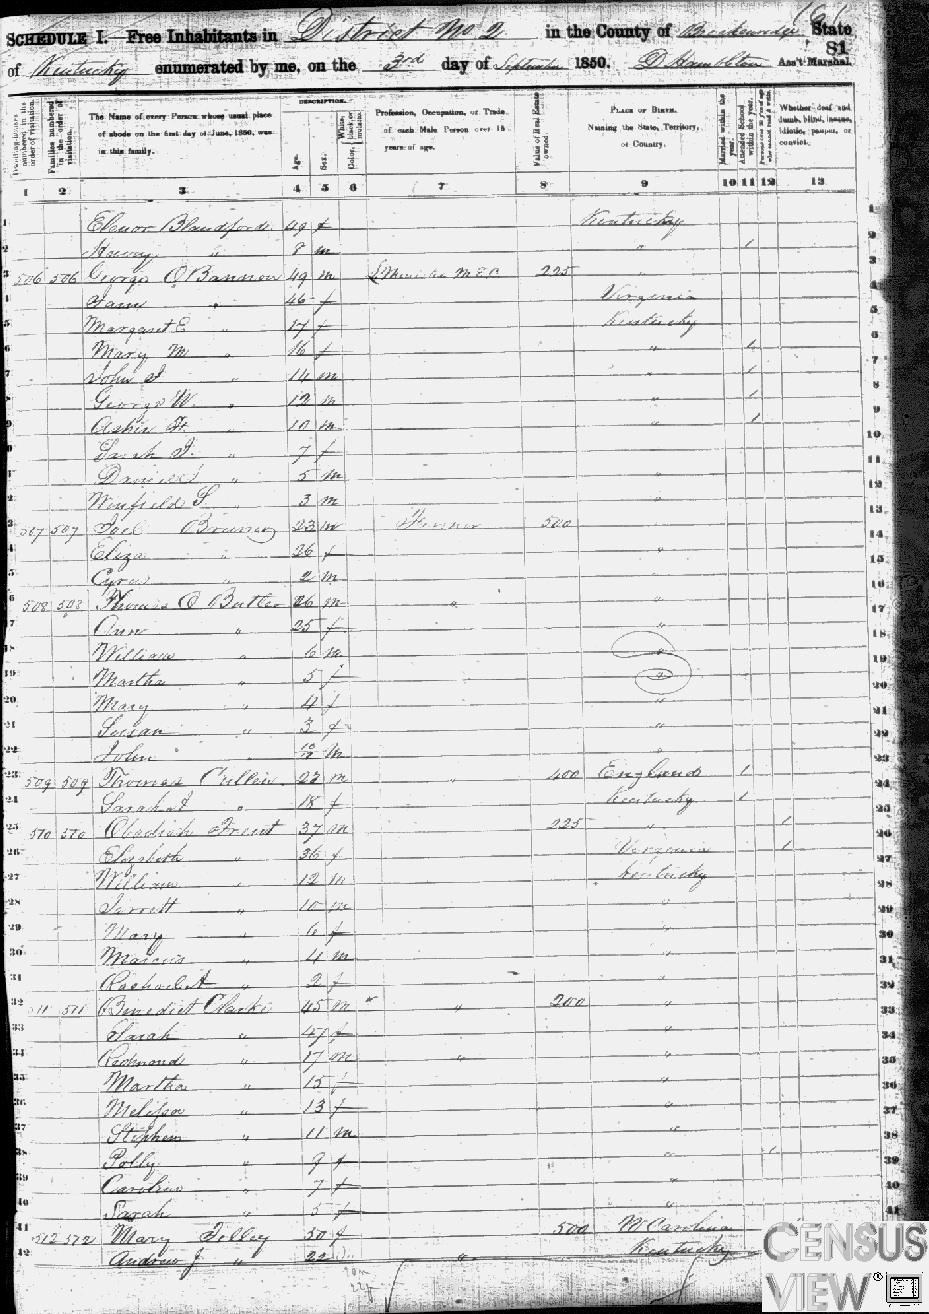 SCHEDULE I.—Free Inhabitants in District No 2 in the County of Breckenridge State
of Kentucky enumerated by me, on the 3rd day of September 1850. D Hambleton Ass't Marshal.
81
Dwelling-houses numbered in the order of visitation.
Families numbered in the order of visitation.
The Name of every Person whose usual place of abode on the first day of June, 1850, was in this family.
DESCRIPTION.
Age.
Sex.
White, black, or mulatto.
Color,
Profession, Occupation, or Trade of each Male Person over 15 years of age.
Value of Real Estate owned.
PLACE OF BIRTH.
Naming the State, Territory, or Country.
Married within the year.
Attended School within the year.
Whether deaf and dumb, blind, insane, idiotic, pauper, or convict.
1 2 3 4 5 6 7 8 9 10 11 12 13
1 Elenor Blandford 49 f Kentucky 1
2 Harvey " 8 m " 1 2
3 506 506 George O Bannon 49 m Minister M E C 225 " 3
4 Jane " 46 f Virginia 4
5 Margaret E " 17 f Kentucky 5
6 Mary M " 16 f " 1 6
7 John I " 14 m " 1 7
8 George W. " 12 m " 1 8
9 " 10 m " 1 9
10 Sarah J. " 7 f 10
11 Daniel " 5 m " 11
12 Winfield S 3 m " 12
13 507 507 Joel Bruner 23 m Farmer 500 " 13
14 Eliza " 26 f " 14
15 Cyrus " 2 m " 15
16 508 508 Thomas O Butler 26 m " " 16
17 Ann " 25 f " 17
18 William " 6 m " 18
19 Martha " 5 f " 19
20 Mary " 4 f " 20
21 Susan " 3 f " 21
22 John " 10/12 m " 22
23 509 509 Thomas Cullin 22 m " 400 England 1 23
24 Sarah A " 18 f Kentucky 1 24
25 510 510 Obadiah Trent 37 m 225 " 1 25
26 Elizabeth " 36 f Virginia 1 26
27 William " 12 m Kentucky 27
28 Jarrett " 10 m " 28
29 Mary " 6 f " 29
30 Marcus " 4 m " 30
31 Rachael A " 2 f " 31
32 511 511 Benedict Clarke 45 m " 200 " 32
33 Sarah " 47 f " 33
34 Redmond " 17 m " " 34
35 Martha " 15 f " 35
36 Melissa " 13 f " 36
37 Stephen " 11 m " 37
38 Polly " 9 f " 1 38
39 Caroline " 7 f " 39
40 Sarah " 5 f " 40
41 512 512 Mary Tilley 50 f 500 N Carolina 41
42 Andrew J " 22 " Kentucky
CENSUS
VIEW®